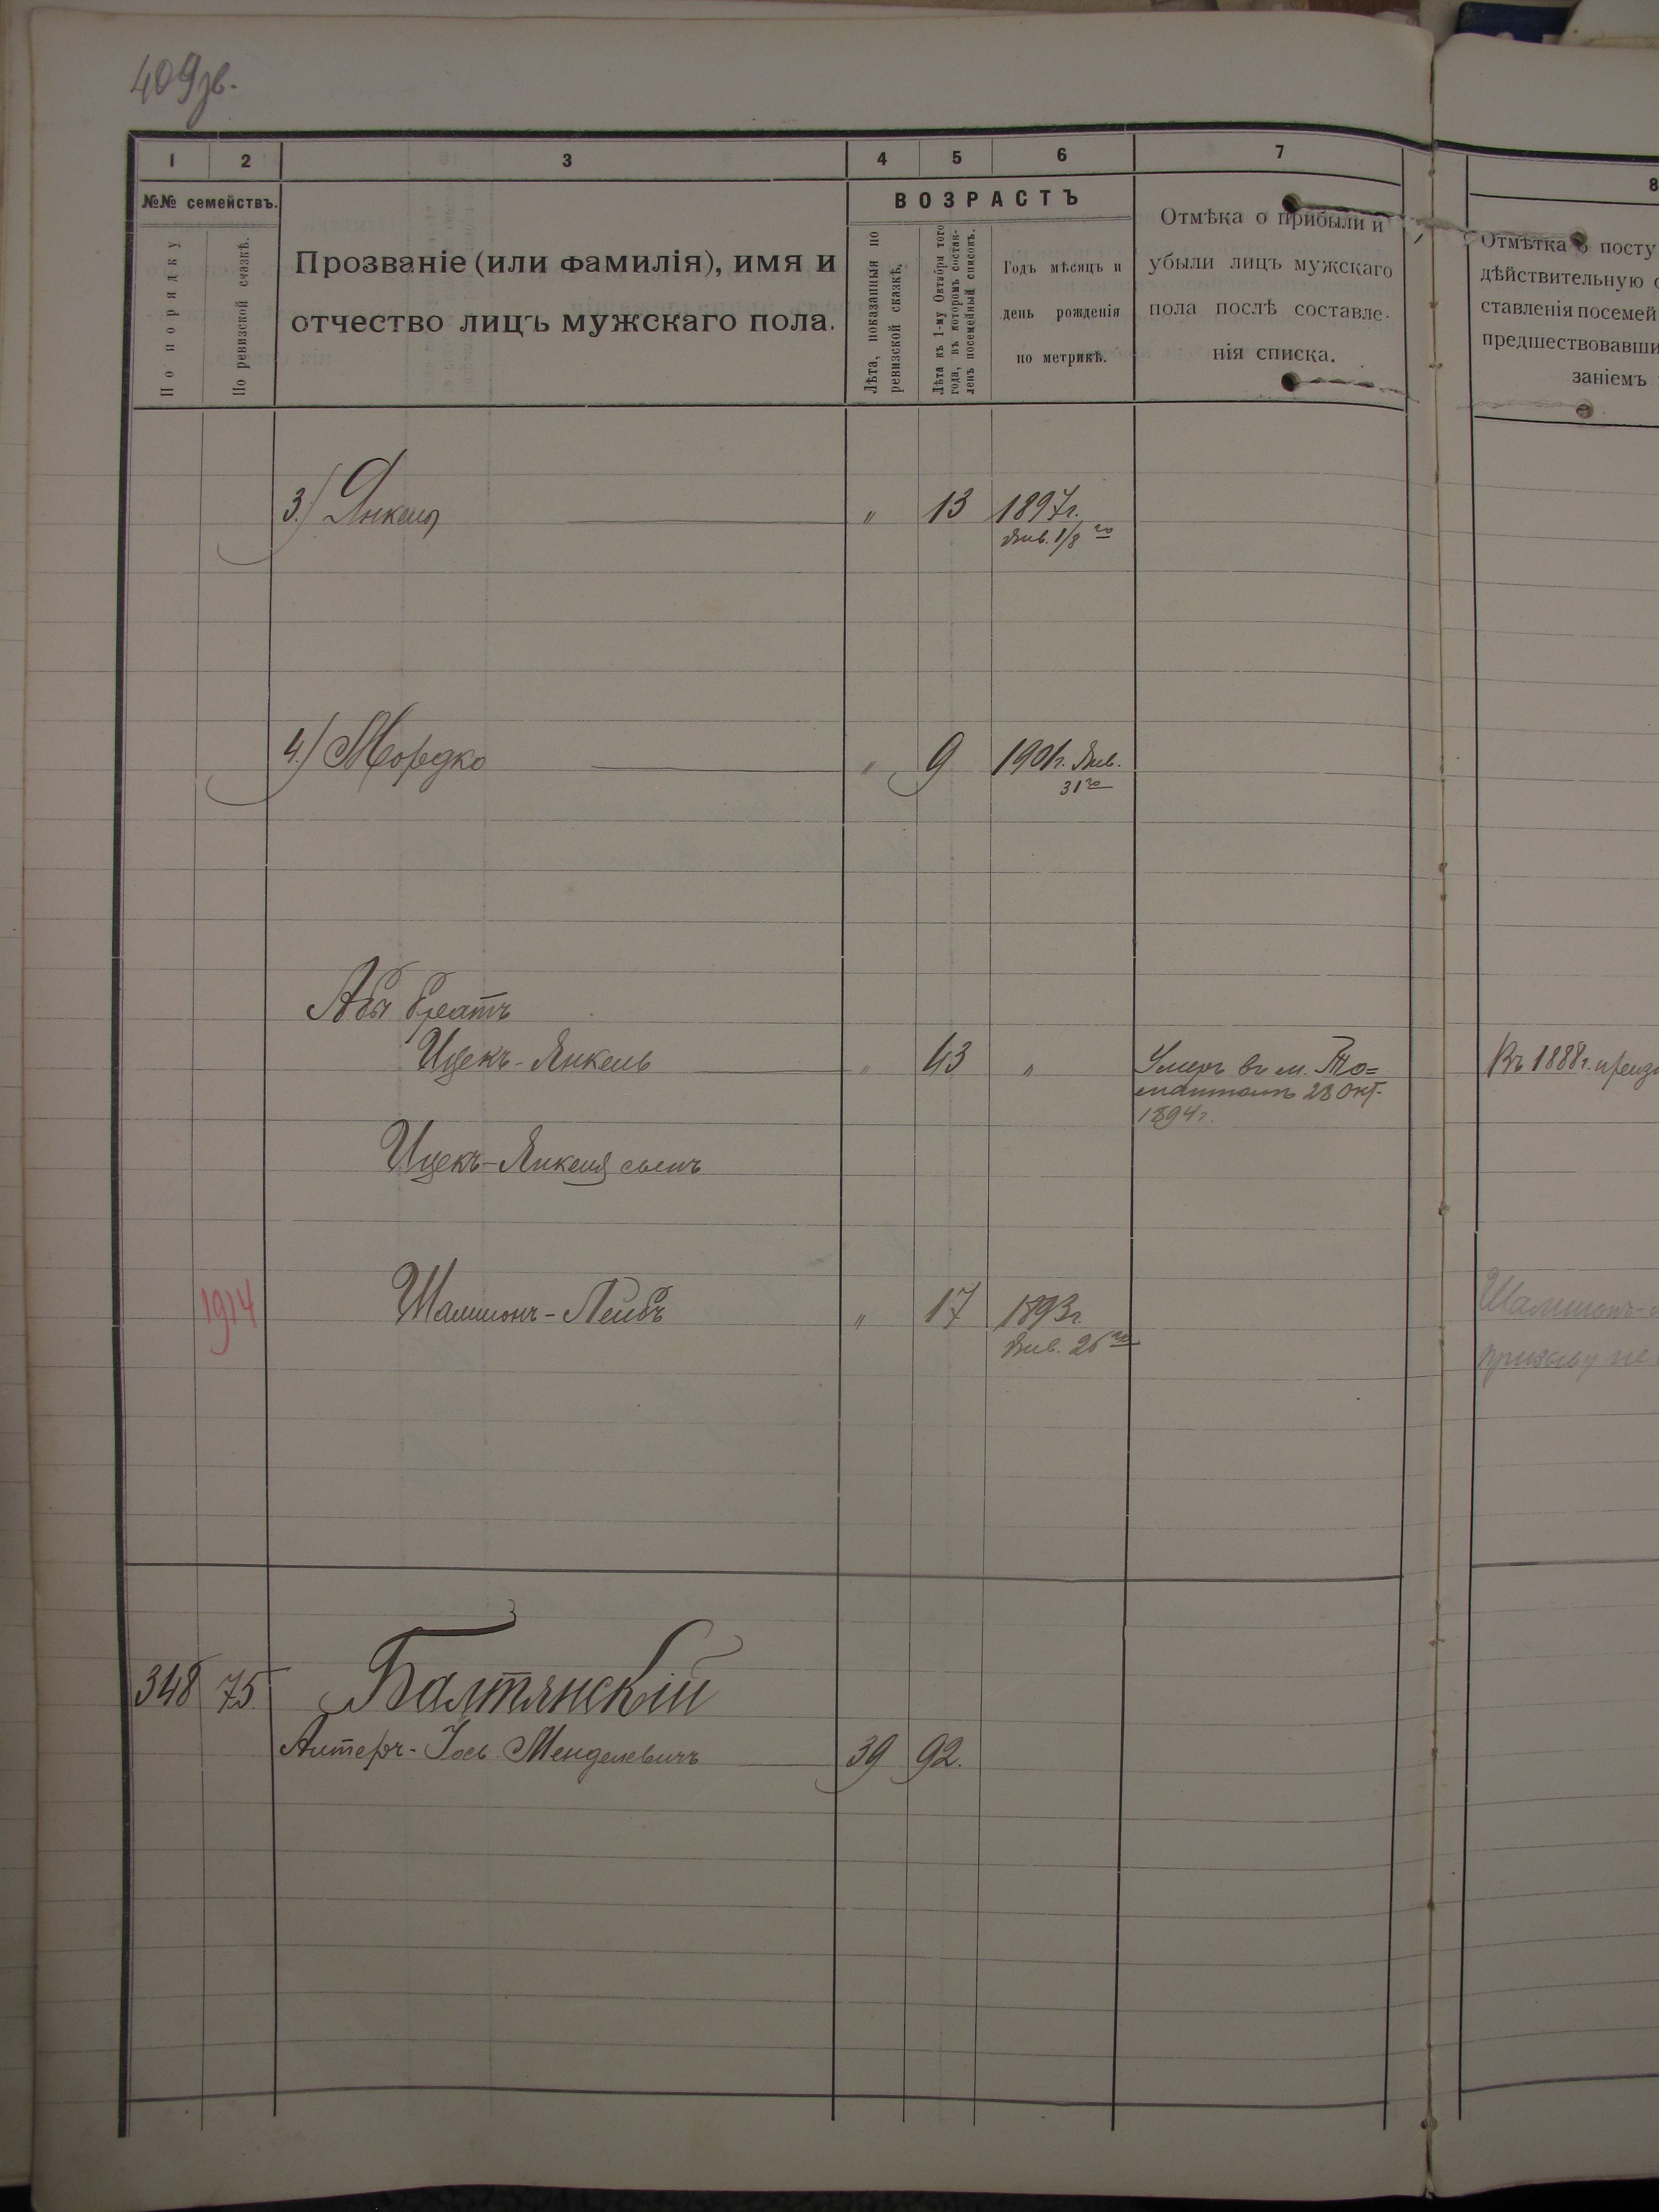 409зв.
1 2 3 4 5 6 7 8
№№ семействъ.
По порядку
По ревизской сказкѣ.
Прозваніе (или фамилія), имя и
отчество лицъ мужскаго пола.
ВОЗРАСТЪ
Лѣта, показанныя по
ревизской сказкѣ.
Лѣта къ 1-му Октября того
года, въ которомъ состав-
ленъ посемейный списокъ.
Годъ мѣсяцъ и
день рожденія
по метрикѣ.
Отмѣка о прибыли и
убыли лицъ мужскаго
пола послѣ составле-
нія списка.
Отмѣтка о посту
дѣйствительную
ставленія посемей
предшествовавши
заніемъ
3.) Янкель " 13 1897г.
Янв. 1/8 го
4.) Мордко " 9 1901г. Янв.
31 го
Абы братъ
Ицекъ-Янкель " 43 " Умеръ въ м. 28 Окт.
1894г.
Въ 1888г.
Ицекъ-Янкеля сынъ
1914 Шаммонъ-Лейбъ " 17 1893г.
Янв. 26 го
Шаммонъ-
призыву не
348 75 Балтянскій
Алтеръ-Іось Менделевичъ 39 92.